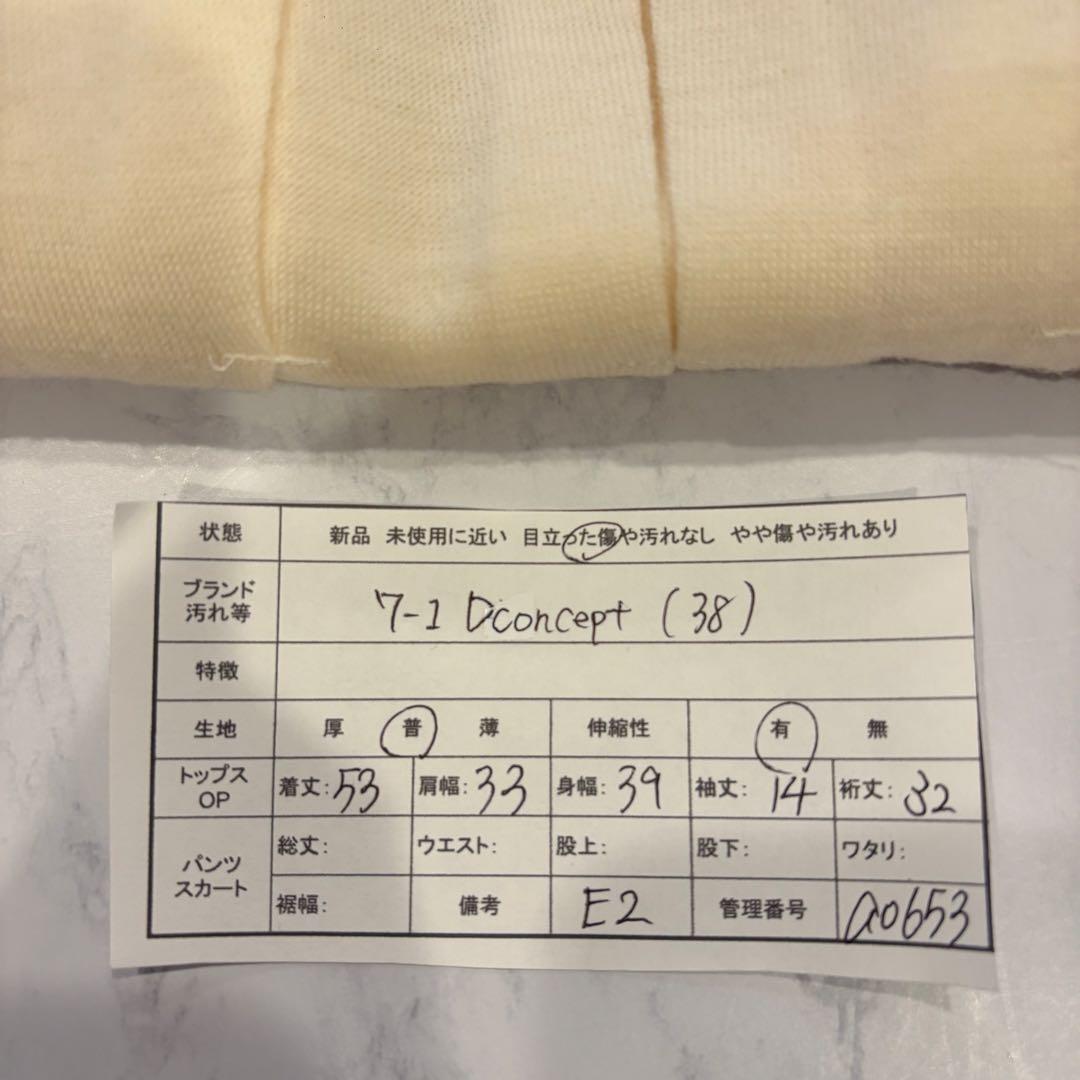 状態 新品 未使用に近い 目立った傷や汚れなし やや傷や汚れあり
ブランド
汚れ等
7-1 Dconcept (38)
特徴
生地 厚 普 薄 伸縮性 有 無
トップス
OP
着丈:53 肩幅:33 身幅:39 袖丈:14 裄丈:32
パンツ
スカート
総丈: ウエスト: 股上: 股下: ワタリ:
裾幅: 備考 E2 管理番号 a0653